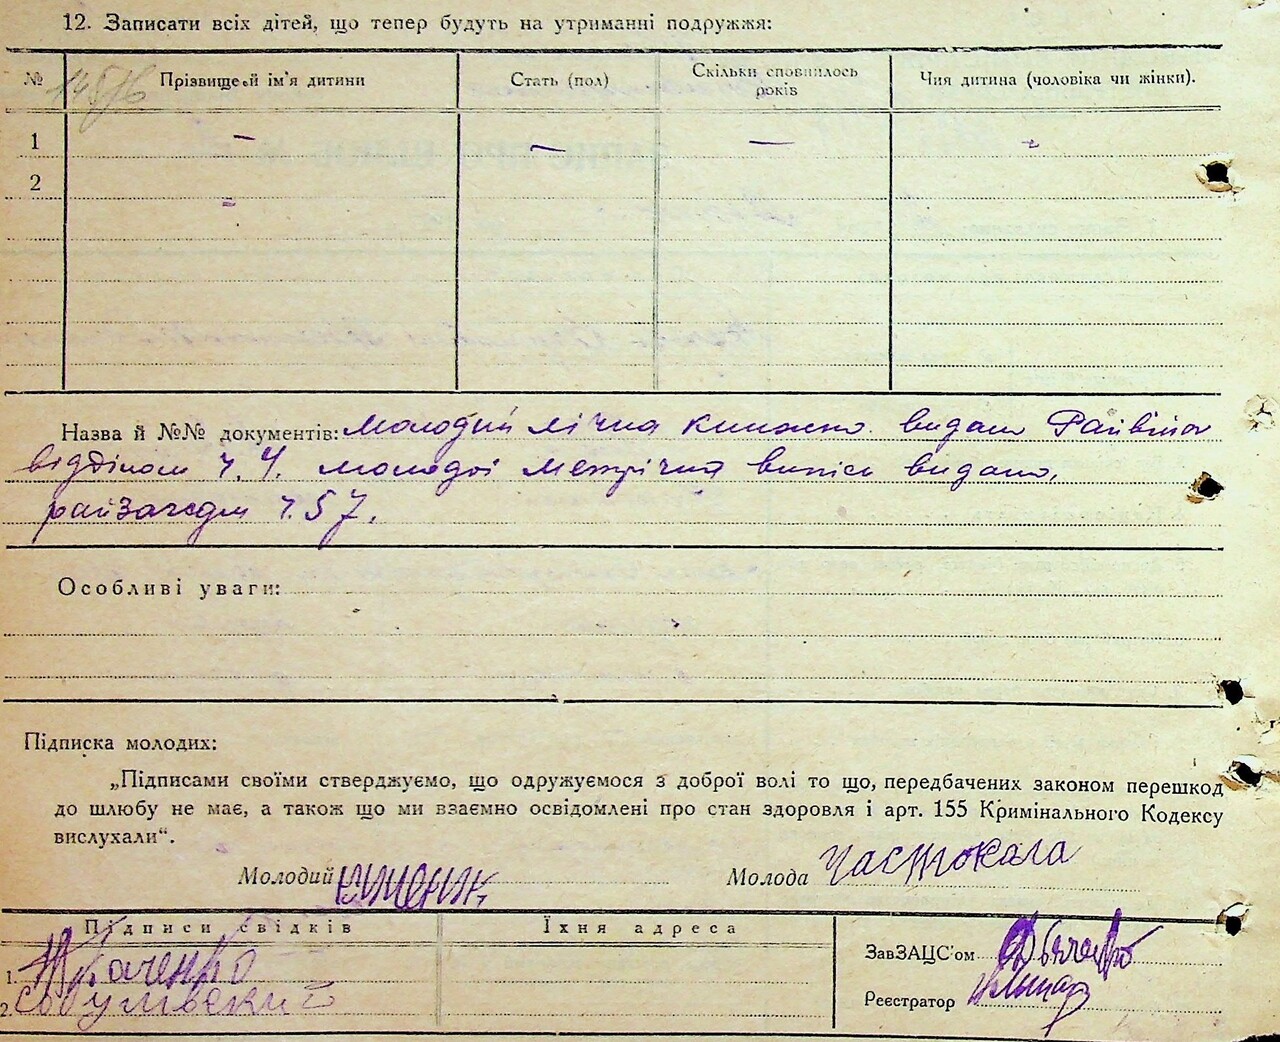 12. Записати всіх дітей, що тепер будуть на утриманні подружжя:
№ Прізвище й ім'я дитини Стать (пол) Скільки сповнилось років Чия дитина (чоловіка чи жінки).
1 — — — -
2 -
Назва й №№ документів: Молодий лічна книжка видат Райвійск
відділом ч. 4. молодої метрічна випись видана,
райзагсдм ч. 57.
Особливі уваги:
Підписка молодих:
„Підписами своїми стверджуємо, що одружуємося з доброї волі то що, передбачених законом перешкод
до шлюбу не має, а також що ми взаємно освідомлені про стан здоровля і арт. 155 Кримінального Кодексу
вислухали“.
Молодий Молода Частокала
Підписи свідків Їхня адреса
ЗавЗАЦС'ом
1. Ткаченко
Реєстратор
2. Собулевский